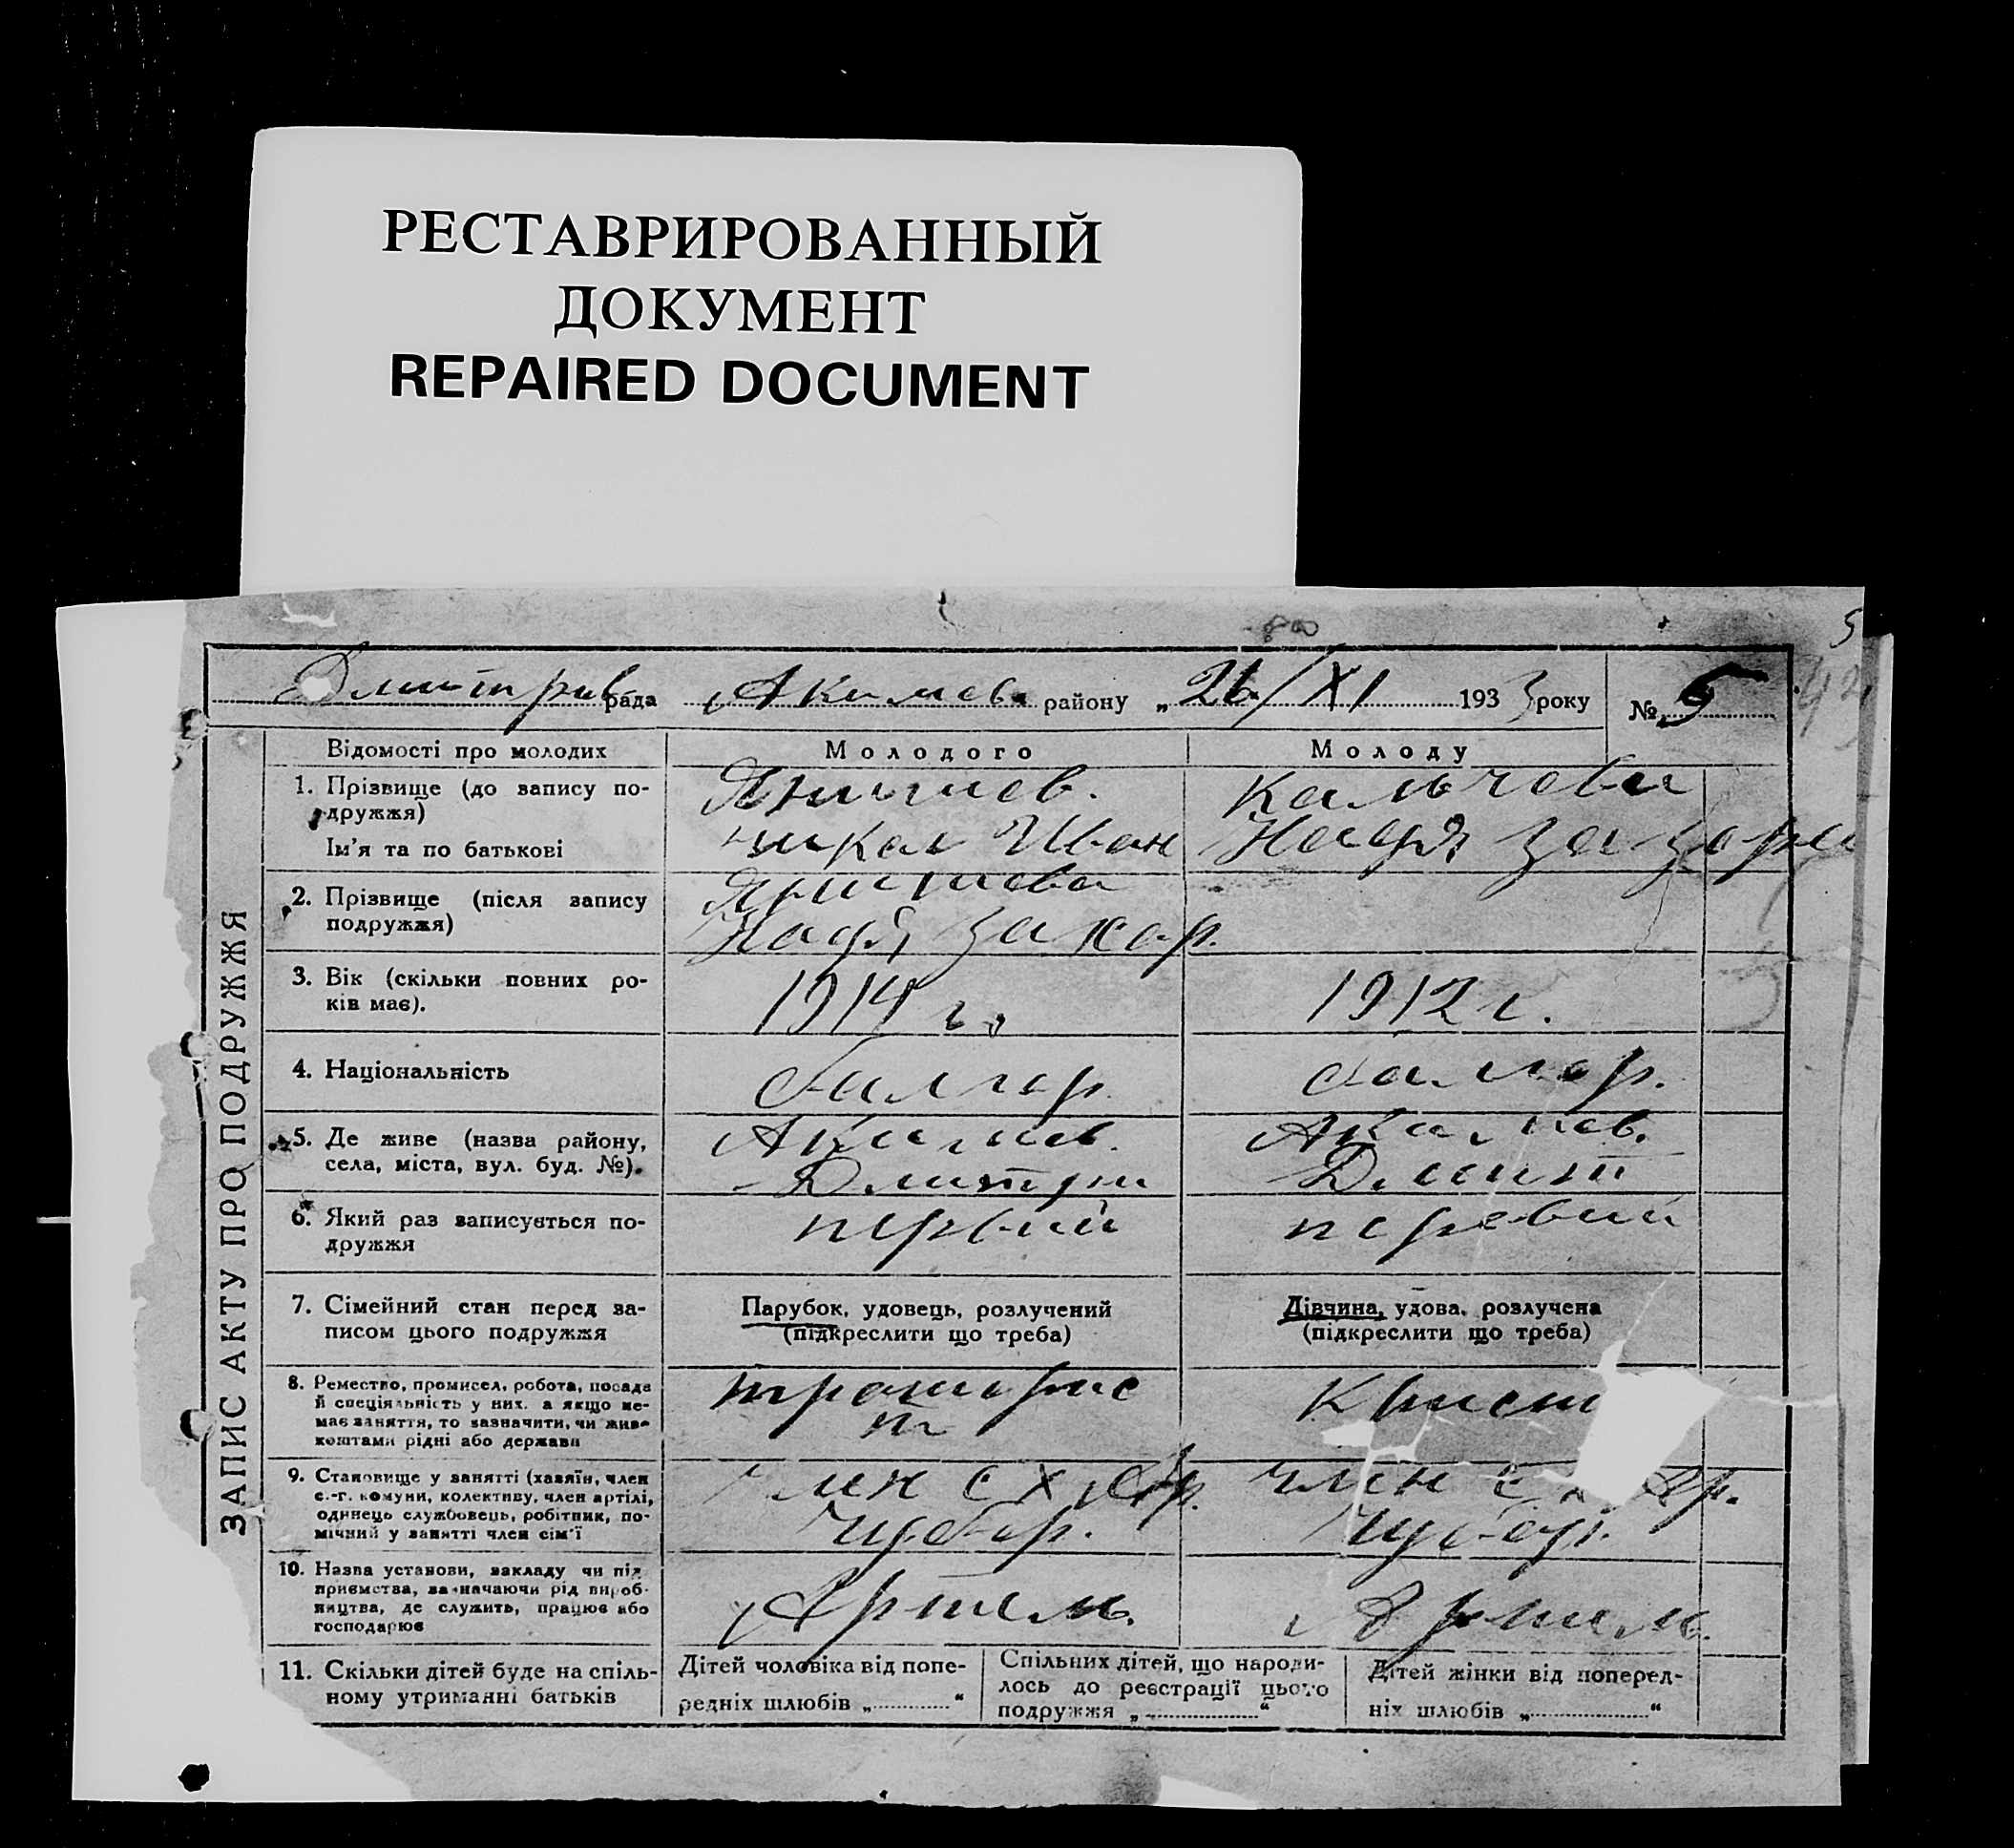 РЕСТАВРИРОВАННЫЙ
ДОКУМЕНТ
REPAIRED DOCUMENT
5
Дмитрив рада Акимов району „26/XI 1933 року № 5
ЗАПИС АКТУ ПРО ПОДРУЖЖЯ
Відомості про молодих Молодого Молоду
1. Прізвище (до запису по-
дружжя)
Кальчева
Ім'я та по батькові
Никол Иван Надя
2. Прізвище (після запису
подружжя)
Надя Захар.
3. Вік (скільки повних ро-
ків має).
1914 г. 1912 г.
4. Національність
болгар. болгар.
5. Де живе (назва району,
села, міста, вул. буд. №).
Акимов. Акимов.
Дмитри Дмит
6. Який раз записується по-
дружжя
первий первий
7. Сімейний стан перед за-
писом цього подружжя
Парубок, удовець, розлучений
(підкреслити що треба)
Дівчина, удова, розлучена
(підкреслити що треба)
8. Ремество, промисел, робота, посада
й спеціяльність у них, а якщо не-
має заняття, то зазначити, чи живе
коштами рідні або держави
9. Становище у занятті (хазяїн, член
с.-г. комуни, колективу, член артілі,
одинець службовець, робітник, по-
мічний у занятті член сім'ї
член с х Ар. член с х Ар.
10. Назва установи, закладу чи під
приємства, зазначаючи рід вироб-
ництва, де служить, працює або
господарює
Артель. Артель.
11. Скільки дітей буде на спіль-
ному утриманні батьків
Дітей чоловіка від попе-
редніх шлюбів „ “
Спільних дітей, що народи-
лось до реєстрації цього
подружжя „ “
Дітей жінки від поперед-
ніх шлюбів „ “